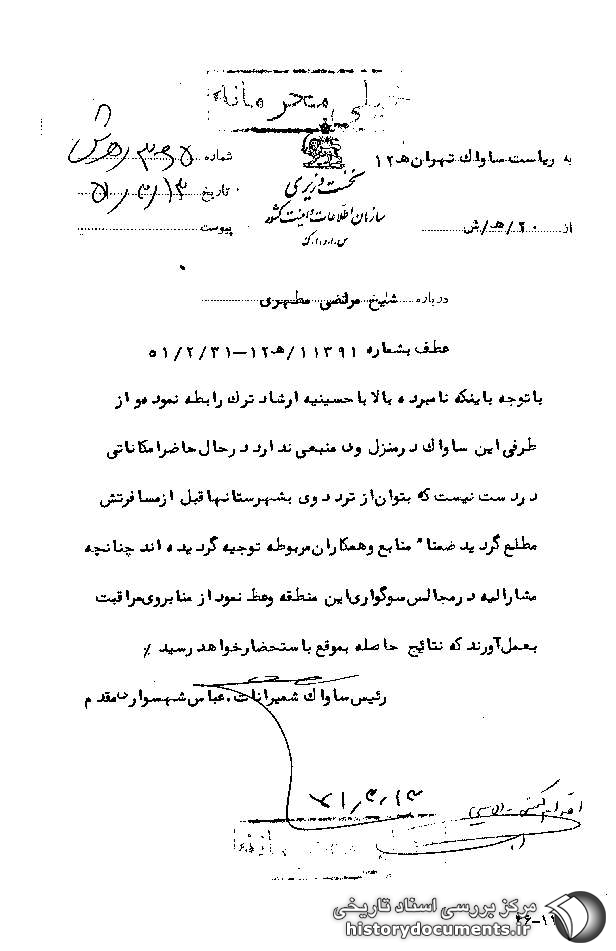 خیلی محرمانه
به ریاست ساواک تهران ه‍ ۱۲
نخست وزیری
سازمان اطلاعات و امنیت کشور
س.ا.و.ا.ک
شماره
تاریخ ۵۱/۳/۱۳
پیوست
از ۲۰/ه‍/ش
درباره شیخ مرتضی مطهری
عطف بشماره ۱۱۳۹۱/ه‍ ۱۲–۵۱/۲/۳۱
با توجه باینکه نامبرده بالا با حسینیه ارشاد ترک رابطه نموده و از
طرفی این ساواک در منزل وی منبعی ندارد در حال حاضر امکاناتی
در دست نیست که بتوان از تردد وی بشهرستانها قبل از مسافرتش
مطلع گردید ضمنا" منابع و همکاران مربوطه توجیه گردیده اند چنانچه
مشارالیه در مجالس سوگواری این منطقه وعظ نمود از منابر وی مراقبت
بعمل آورند که نتایج حاصله بموقع باستحضار خواهد رسید ٪
رئیس ساواک شمیرانات. عباس شهسواری مقدم
مرکز بررسی اسناد تاریخی
historydocuments.ir